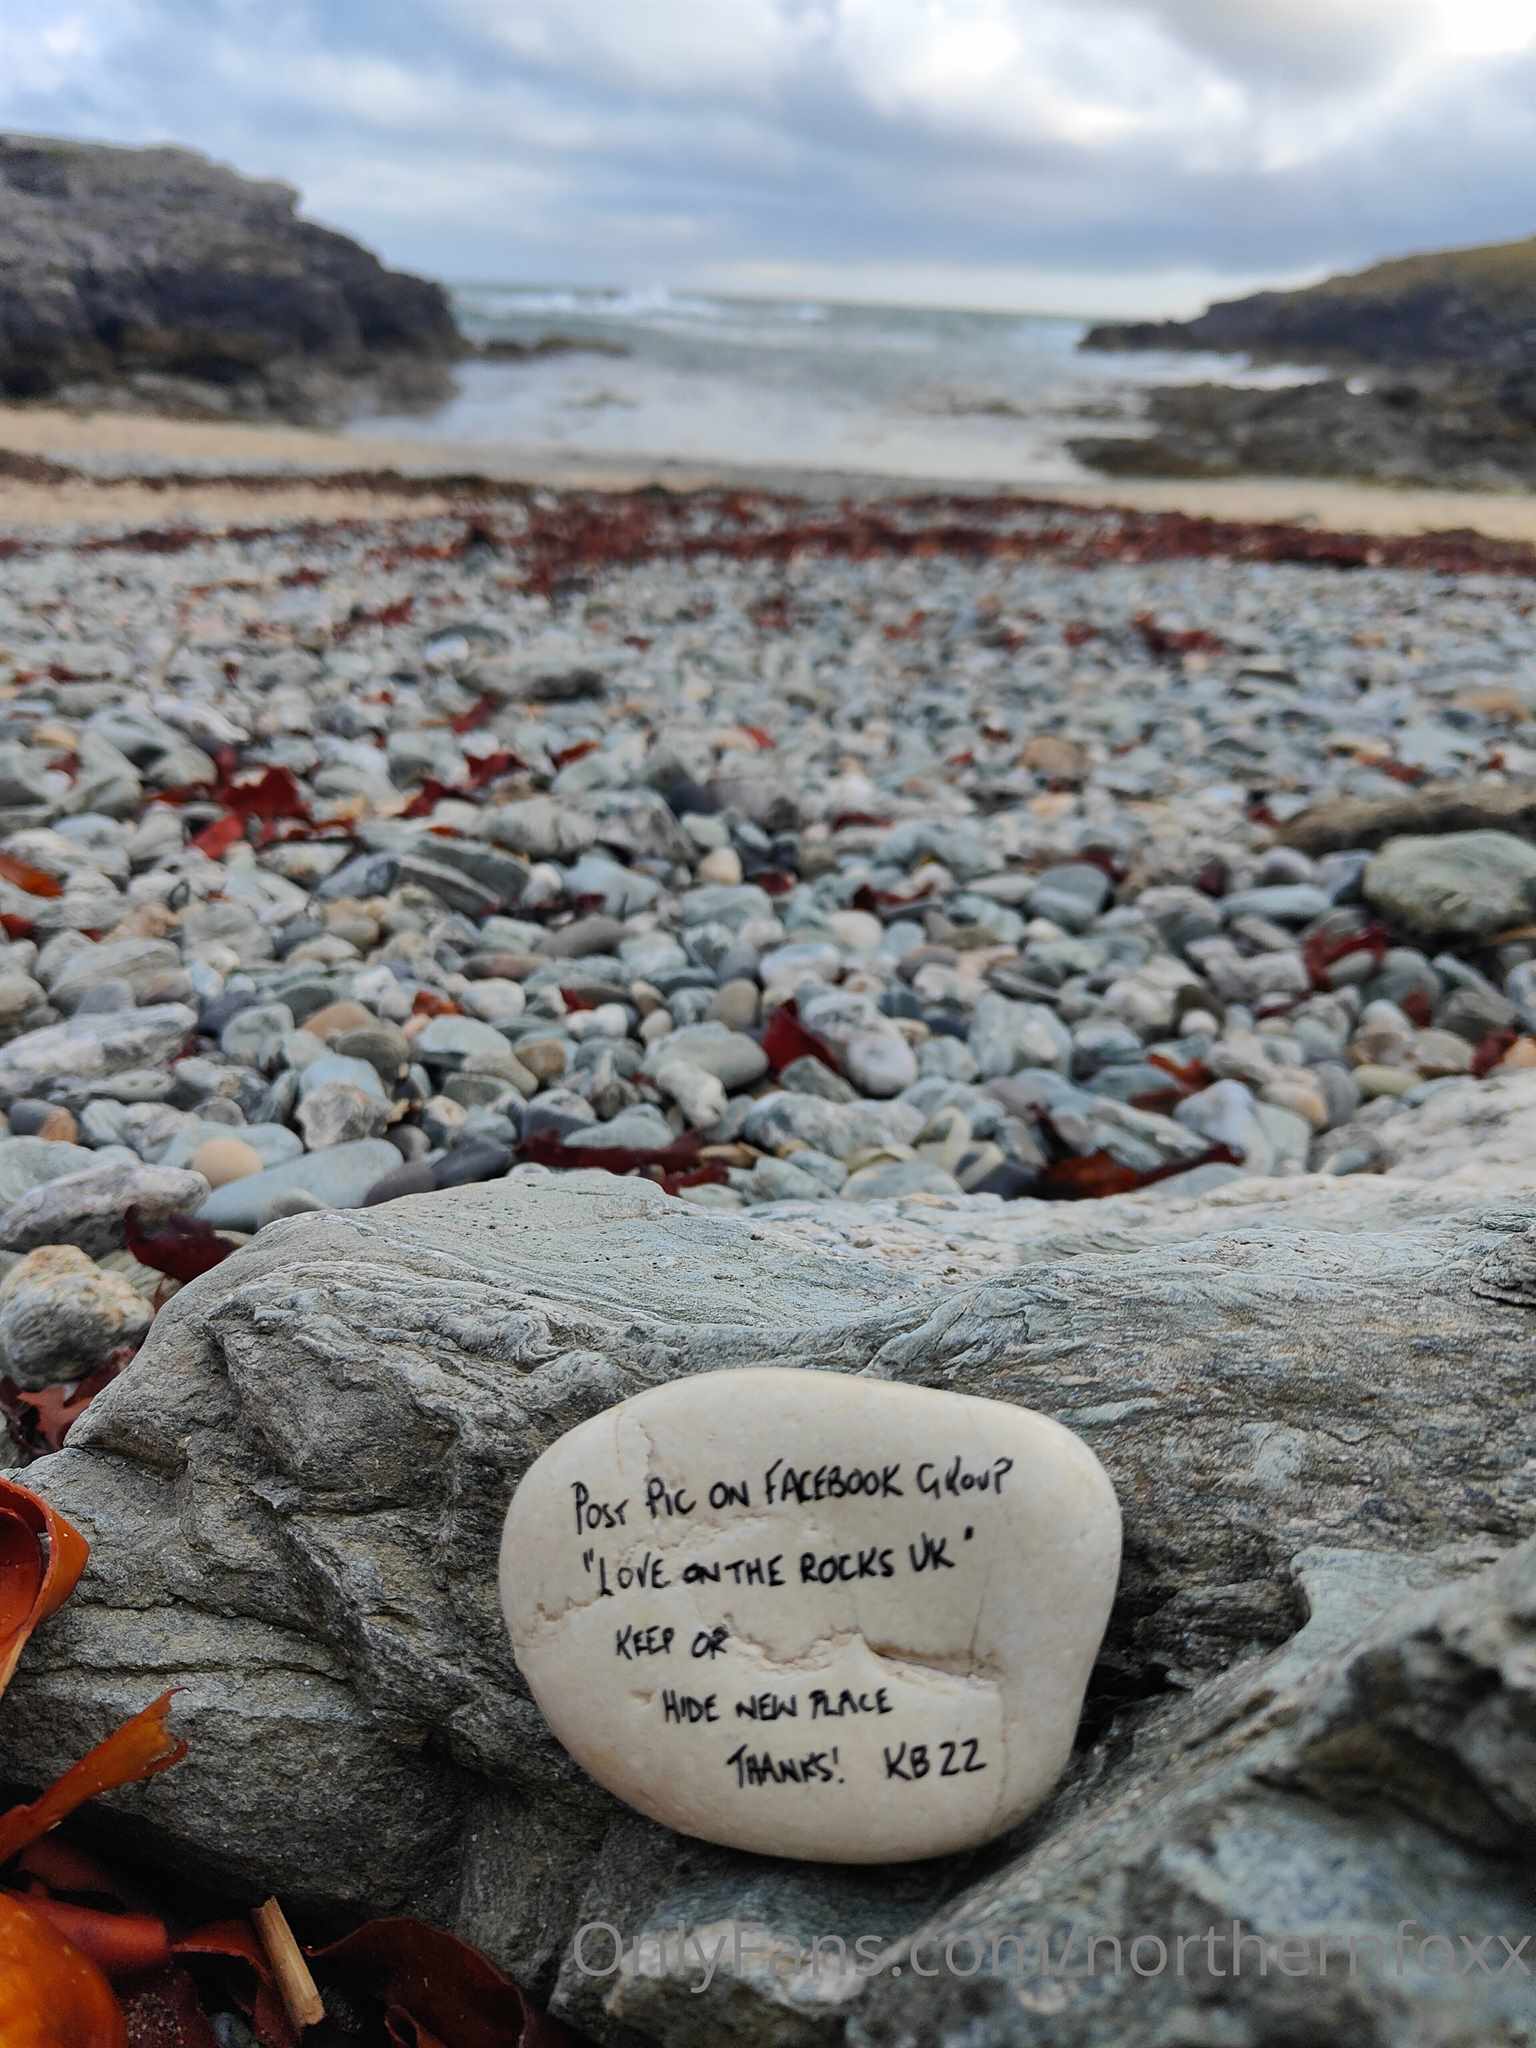 POST PIC ON FACEBOOK GROUP
"LOVE ON THE ROCKS UK"
KEEP OR
HIDE NEW PLACE
THANKS! KB22
OnlyFans.com/northernfoxx